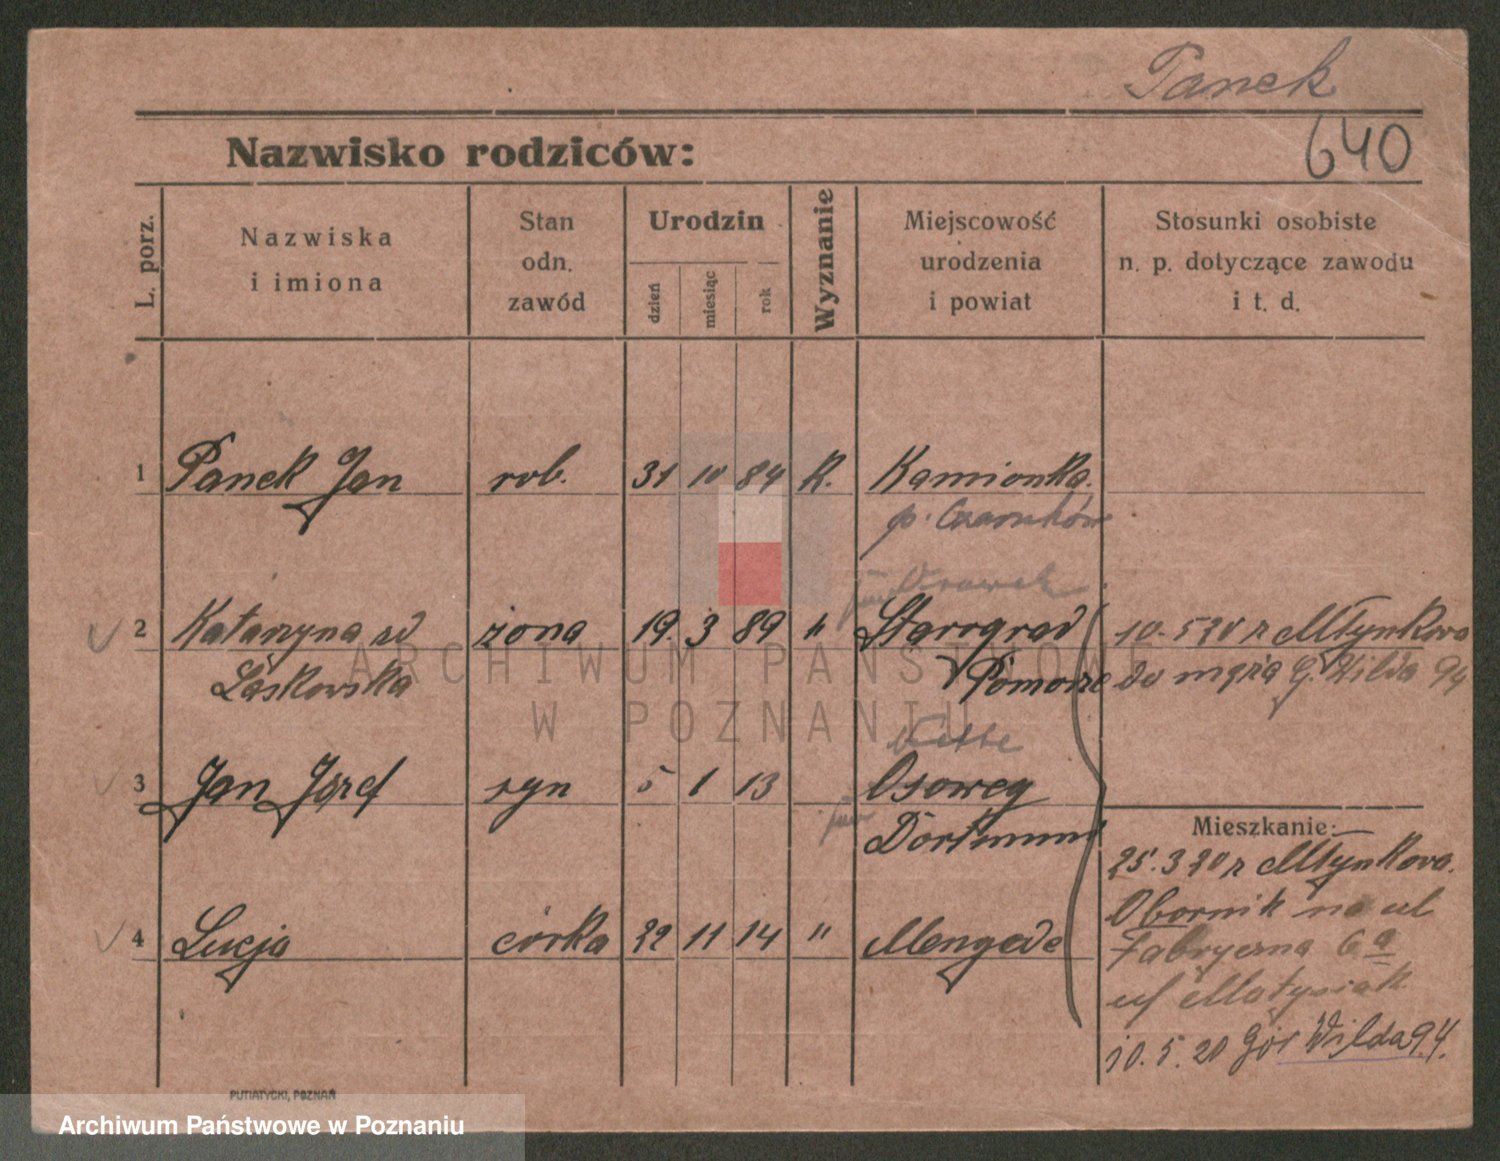 Panek
640
Nazwisko rodziców:
L. porz.
Nazwiska
i imiona
Stan
odn.
zawód
Urodzin
dzień
miesiąc
rok
Wyznanie
Miejscowość
urodzenia
i powiat
Stosunki osobiste
n. p. dotyczące zawodu
i t. d.
1 Panek Jan rob. 31 10 84 R. Kamionka.
p. Czarnków
2 Katarzyna zd żona 19. 3 89 " Starograd 10. 5 20 z Młynkowa
Laskowska Pomorze do męża G. Wilda 94
3 Jan Józef syn 5 1 13
Dortmund
Mieszkanie:
25. 3 20 z Młynkowa.
Obornik na ul
Fabryczna 6a
4 Lucja córka 22 11 14 " Mengede
uf Matysiak
10. 5. 20 Gór Wilda 94.
PUTIATYCKI, POZNAŃ
ARCHIWUM PAŃSTWOWE
W POZNANIU
Archiwum Państwowe w Poznaniu